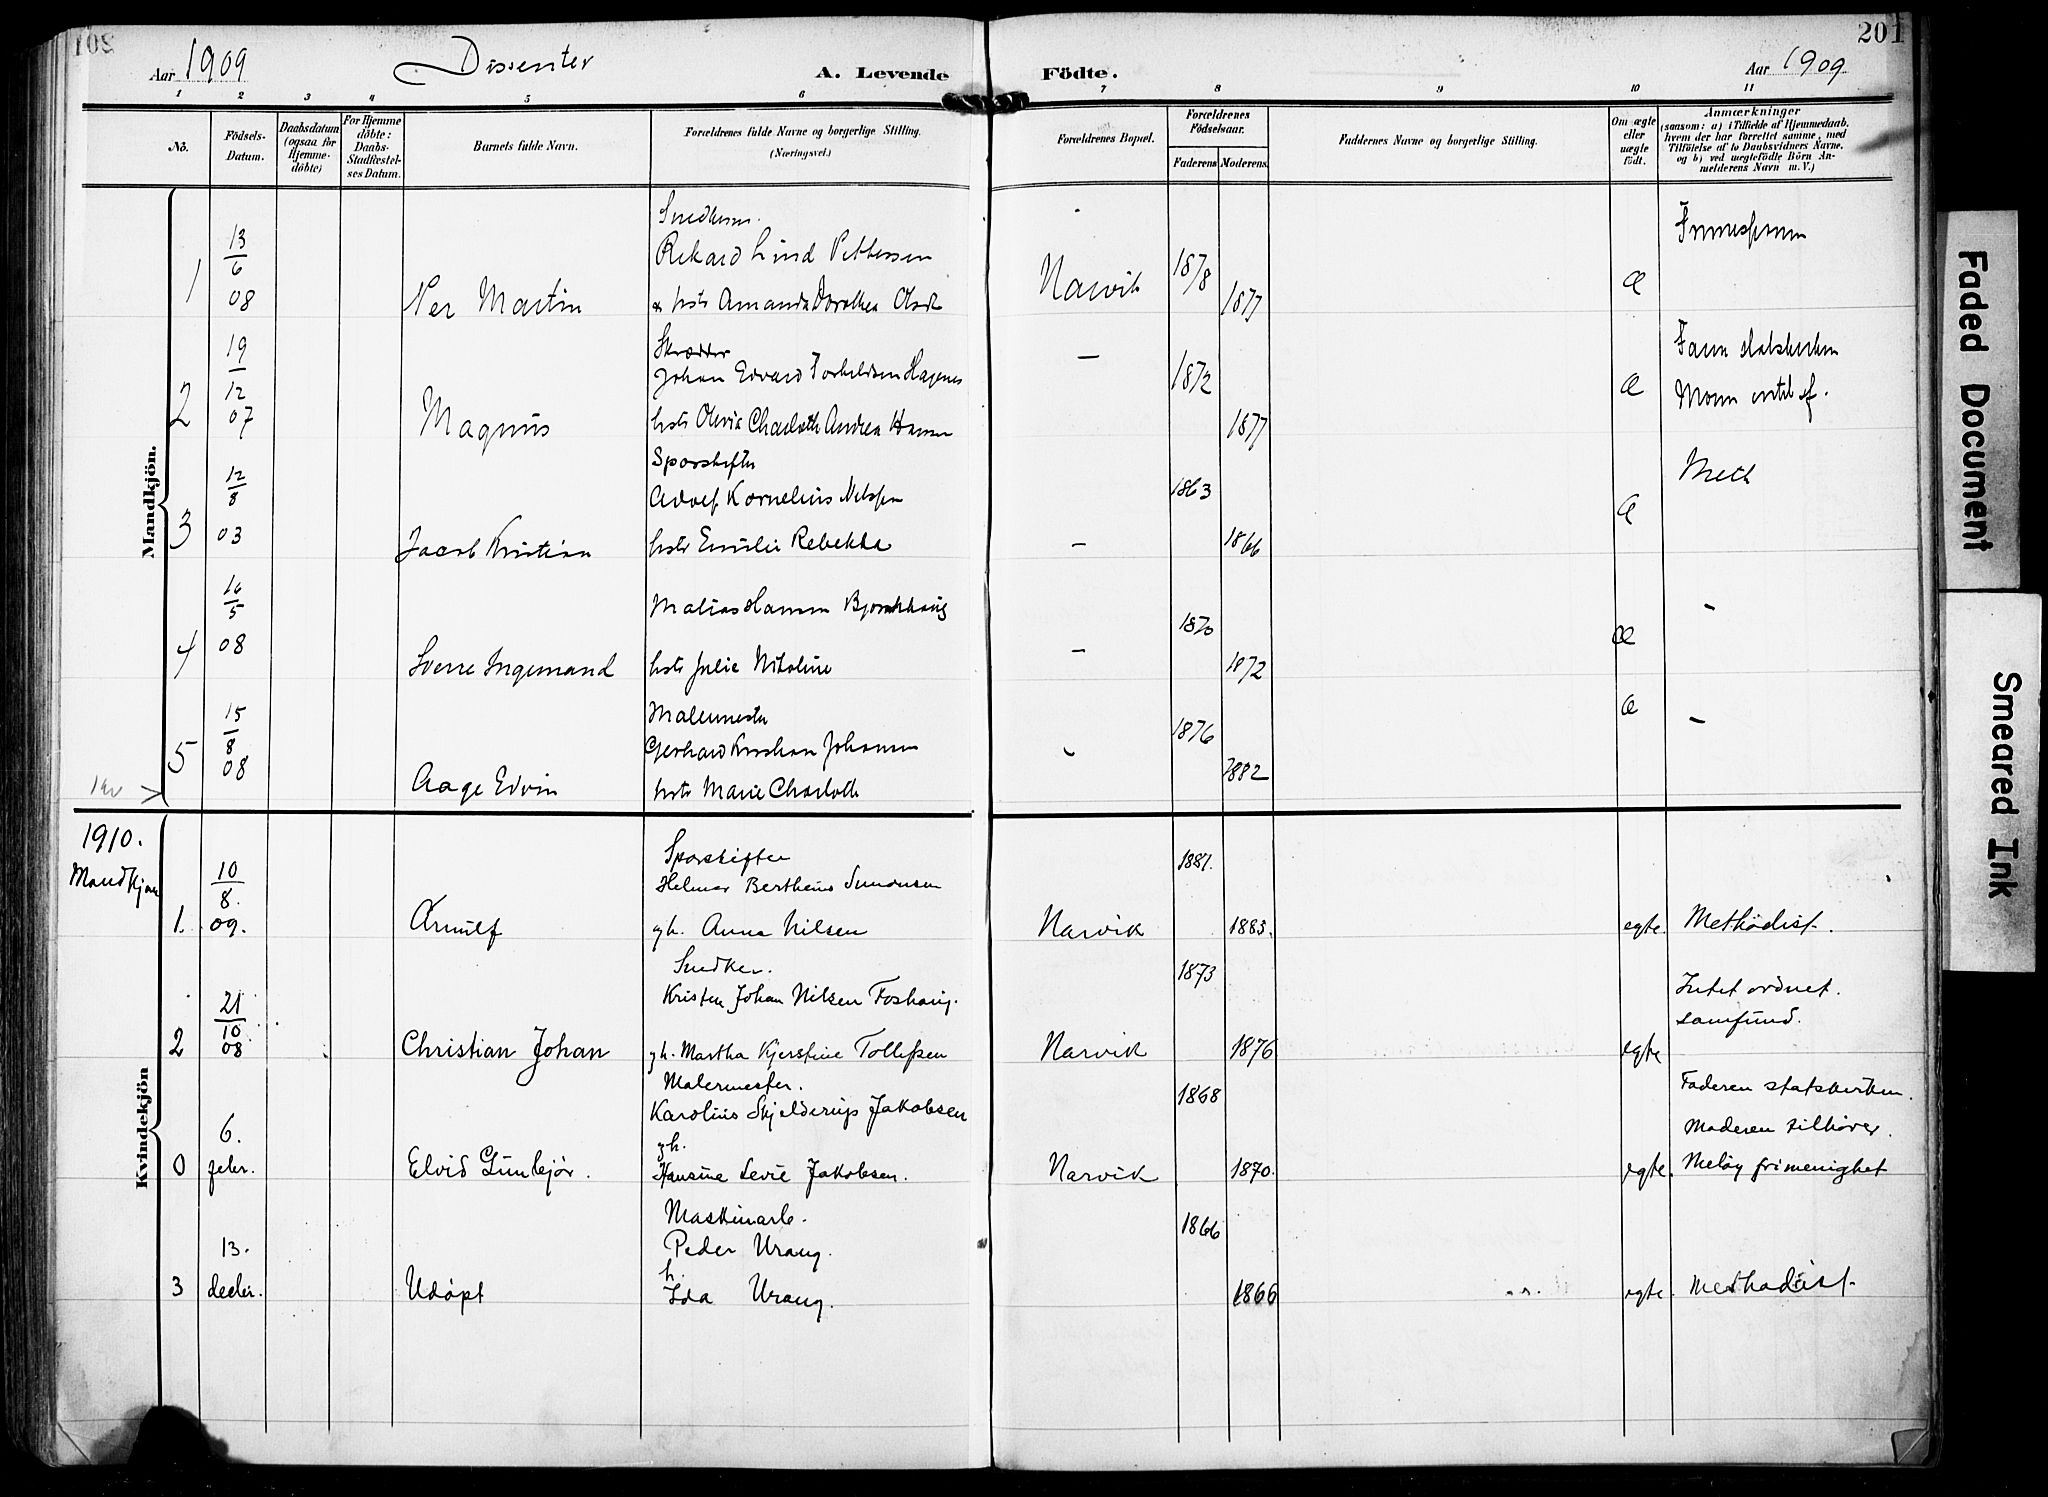 201
Aar 1909
Dissenter
A. Levende
Födte.
Aar 1909
201
1 2 3 4 5 6 7 8 9 10 11
No.
Födsels-Datum.
Daabsdatum (ogsaa for Hjemmedöbte)
For Hjemmedöbte: Daabs-Stadfestelses Datum.
Barnets fulde Navn.
Forældrenes fulde Navne og borgerlige Stilling.
(Næringsvei.)
Forældrenes Bopæl.
Forældrenes Födselsaar.
Faderens
Moderens.
Faddernes Navne og borgerlige Stilling.
Om ægte eller uægte födt.
Anmærkninger
(saasom: a) i Tilfælde af Hjemmedaab,
hvem der har forrettet samme, med
Tilföielse af to Daabsvidners Navne.
og b) ved uægtefödte Börn Anmelderens Navn m. V.)
Mandkjön.
1 13/6 08 Per Martin
Rikard Lind Pettersen
Amanda Dorothea
Narvik 1878 1877 Æ
2 19/12 07 Magnus
Skrædder
Johan Edvard Torkildsen Hagenes
hstr Olivia Charlotte Andrea Hansen
— 1872 1877 Æ
3 12/8 03 Jacob Kristian
Sporskifter
Adolf Kornelius Nilssen
hstr Emilie Rebekka
— 1863 1866 Æ Meth
4 16/5 08 Sverre Ingemand
Matias Hansen
hstr Julie Nikoline
— 1870 1872 Æ —
5 15/8 08 Aage Edvin
Malermester
Gerhard Kristian Johansen
hstr Marie Charlotte
1876 1882 Æ —
1910.
Mandkjøn
1. 10/8. 09. Arnulf
Sporskifter
Helmer Bertheus Simonsen
gh. Anna Nilsen
Narvik 1881. 1883. egte. Methodist.
2 21/10 08 Christian Johan
Snedker.
Kristen Johan Nilsen Foshaug.
gh. Martha Kjerstine Tollefsen
Narvik 1873 1876 egte
Intet ordnet.
samfund.
Kvindekjön
0 6. febr. Elvid Gunbjør.
Malermester.
Karolius Skjelderup Jakobsen
gh.
Hansine Levie Jakobsen.
Narvik 1868 1870. egte.
Faderen statskirken.
Moderen tilhører.
Meløy frimenighet
3 13. decbr. Udøpt
Maskinarb.
Peder Urang.
h.
Ida Urang.
1866 1866 egte. Methodist
Faded Document
Smeared Ink